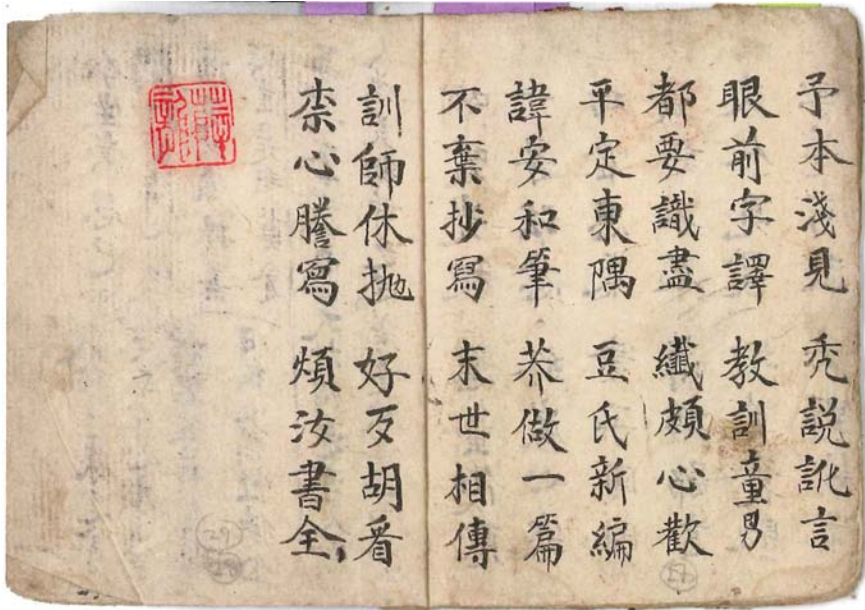 予本淺見 禿説訛言
眼前字譯 教訓童男
都要識盡 纖頗心歡
平定東隅 豆氏新編
諱安和筆 芥做一篇
不棄抄寫 末世相傳
訓師休抛 好歹胡看
柰心謄寫 煩汝書全